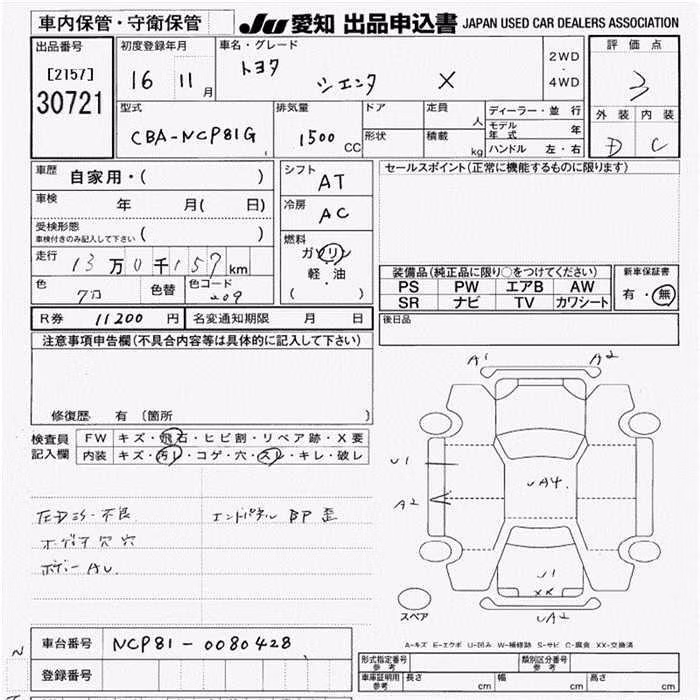 車内保管・守衛保管
JU 愛知 出品申込書 JAPAN USED CAR DEALERS ASSOCIATION
出品番号
[2157]
30721
初度登録年月
16 11 月
車名・グレード
トヨタ シエンタ X
2WD
・
4WD
評価点
3
外装 内装
D C
型式
CBA-NCP81G
排気量
1500 CC
ドア
形状
定員 人
積載 kg
ディーラー・並行
モデル年式 年
ハンドル 左・右
車歴 自家用・( )
車検 年 月( 日)
受検形態
車検付きのみ記入して下さい ( )
走行 13万0千157km
色 色替 色コード
209
シフト
AT
冷房
AC
燃料
ガソリン
軽・油
( )
セールスポイント(正常に機能するものに限ります)
装備品(純正品に限り○をつけてください)
PS PW エアB AW
SR ナビ TV カワシート
新車保証書
有・無
R券 11200 円 名変通知期限 月 日
後日品
注意事項申告欄(不具合内容等は具体的に記入して下さい)
修復歴 有 (箇所 )
検査員
記入欄
FW キズ・飛石・ヒビ割・リペア跡・X要
内装 キズ・汚レ・コゲ・穴・スレ・キレ・破レ
不良 エンドパネル BP 歪
穴
ボデー AU
A1 A2
U1
A2
UA4.
U1
XX
UA2
スペア
A-キズ E-エクボ U-凹み W-補修跡 S-サビ C-腐食 XX-交換済
車台番号 NCP81-0080428
登録番号
形式指定番号
参考
類別区分番号
参考
車庫証明用
参考
長さ cm 幅 cm 高さ cm